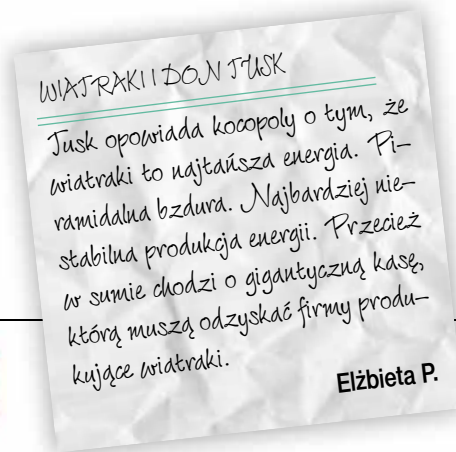 WIATRAKI I DON TUSK
Tusk opowiada kocopoly o tym, że
wiatraki to najtańsza energia. Pi-
ramidalna bzdura. Najbardziej nie-
stabilna produkcja energii. Przecież
w sumie chodzi o gigantyczną kasę,
którą muszą odzyskać firmy produ-
kujące wiatraki.
Elżbieta P.